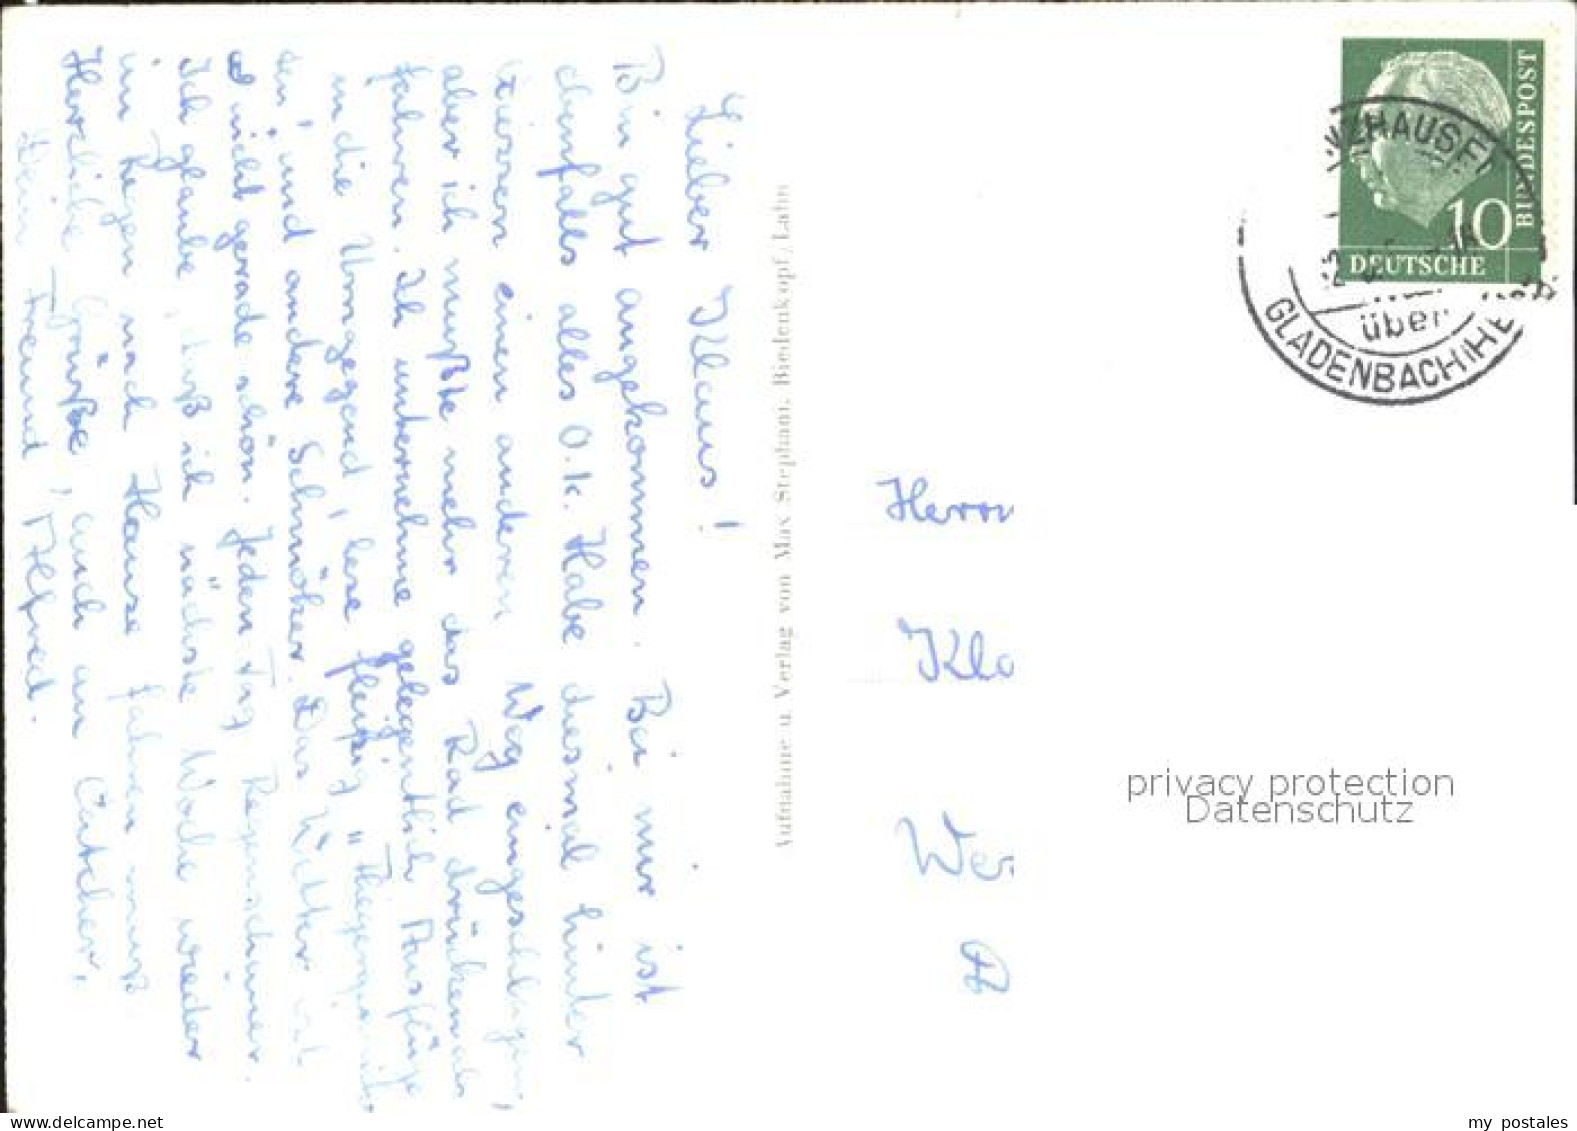 Lieber Klaus!
Bin gut angekommen. Bei mir ist
ebenfalls alles O.k. Habe diesmal hinter
einen anderen Weg eingeschlagen,
aber ich mußte mehr das Rad drücken als
fahren. Ich unternehme gelegentlich Ausflüge
in die Umgegend, lese fleißig
und andere Schmöker. Das Wetter ist
nicht gerade schön. Jeden Tag Regenschauer.
Ich glaube, daß ich nächste Woche wieder
im Regen nach Hause fahren muß.
Herzliche Grüße, auch an
Dein Freund, Alfred.
Aufnahme u. Verlag von Max Stephani, Biedenkopf/Lahn
BUNDESPOST
10
DEUTSCHE
über
GLADENBACH
Herrn
Kla
We
privacy protection
Datenschutz
www.delcampe.net
my_postales